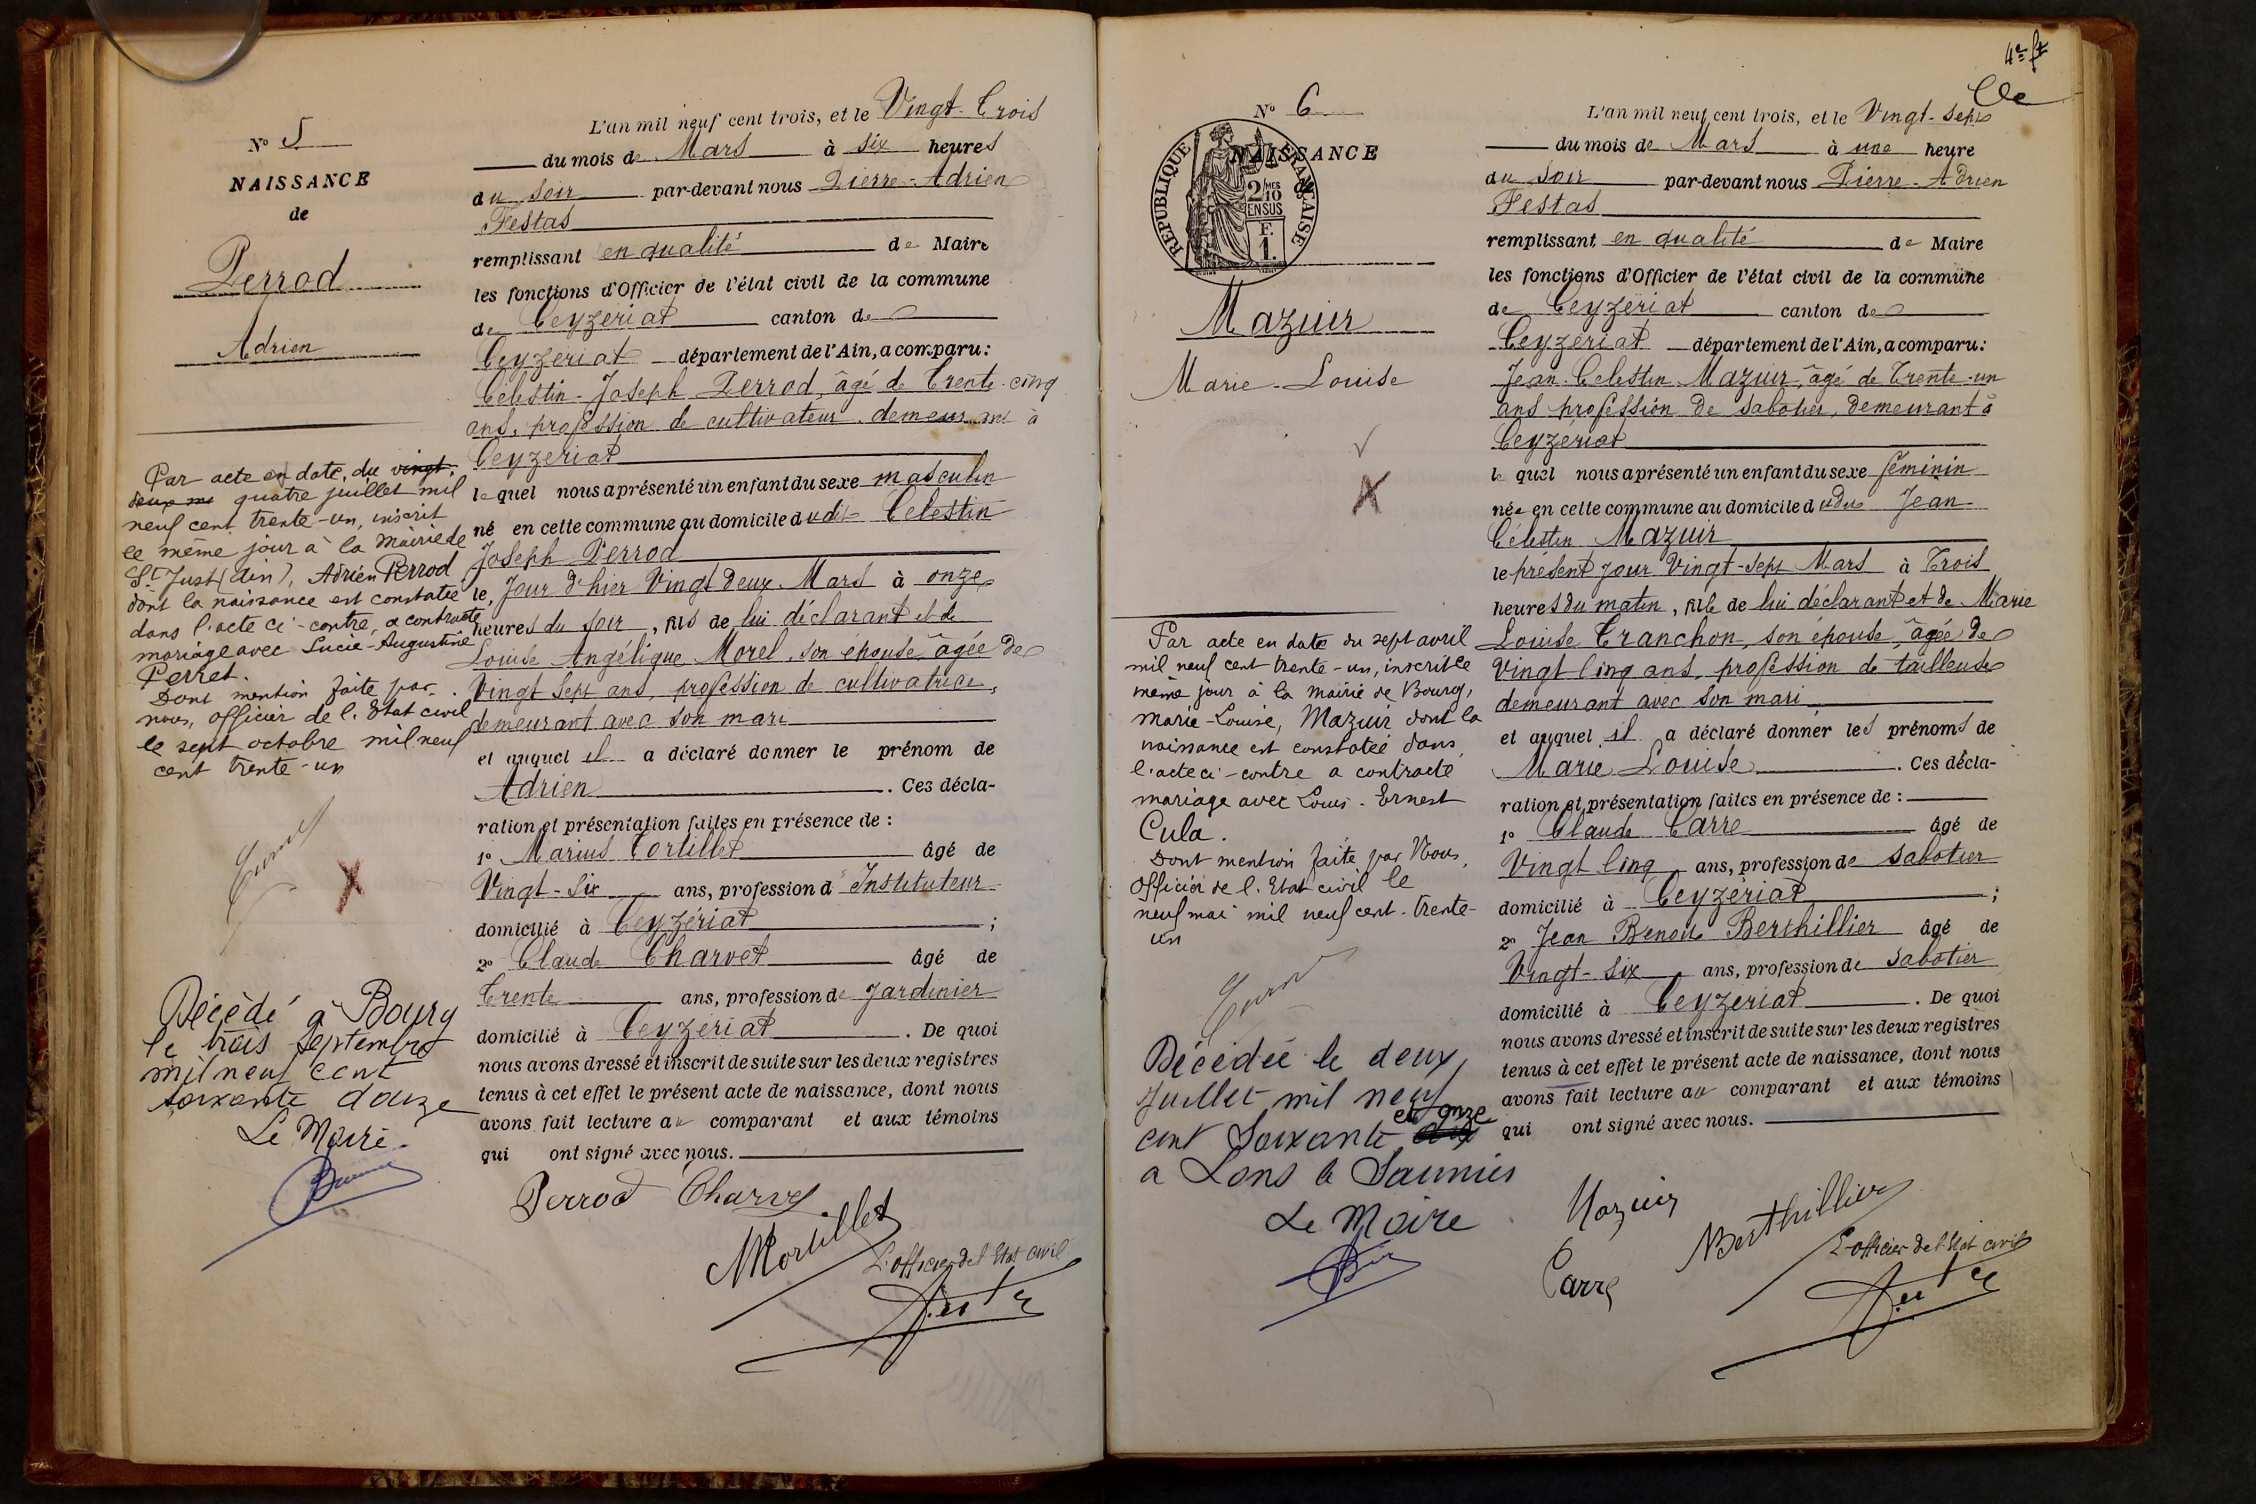 N° 5
NAISSANCE
de
Perrod
Adrien
Par acte en date, du vingt
deux mi quatre juillet mil
neuf cent trente-un, inscrit
le même jour à la Mairie de
St Just (Ain), Adrien Perrod
dont la naissance est constatée
dans l'acte ci-contre, a contracté
mariage avec Lucie-Augustine
Perret.
Dont mention faite par
nous, officier de l'Etat civil
le sept octobre mil neuf
cent trente-un
Décédé à Bourg
le trois Septembre
mil neuf cent
soixante douze
Le Maire.
L'an mil neuf cent trois, et le Vingt-Trois
du mois de Mars à six heures
du soir par-devant nous Pierre-Adrien
Festas
remplissant en qualité de Maire
les fonctions d'Officier de l'état civil de la commune
de Ceyzériat canton de
Ceyzériat département de l'Ain, a comparu:
Célestin-Joseph Perrod, âgé de Trente-cinq
ans, profession de cultivateur demeurant à
Ceyzériat
lequel nous a présenté un enfant du sexe masculin
né en cette commune au domicile dudit Célestin
Joseph Perrod
le, Jour d'hier Vingt deux Mars à onze
heures du soir, fils de lui déclarant et de
Louise Angélique Morel, son épouse âgée de
Vingt Sept ans, profession de cultivatrice,
demeurant avec son mari
et auquel il a déclaré donner le prénom de
Adrien. Ces décla-
ration et présentation faites en présence de :
1° Marius Tortillet âgé de
Vingt-Six ans, profession d'Instituteur
domicilié à Ceyzériat ;
2° Claude Charvet âgé de
Trente ans, profession de Jardinier
domicilié à Ceyzériat. De quoi
nous avons dressé et inscrit de suite sur les deux registres
tenus à cet effet le présent acte de naissance, dont nous
avons fait lecture au comparant et aux témoins
qui ont signé avec nous.
Perrod Charvet
L'officier de l'Etat civil
4e ft
N° 6
NAISSANCE
de
REPUBLIQUE FRANÇAISE
2/10 MES
EN SUS
F.
1.
Mazuir
Marie-Louise
Par acte en date du sept avril
mil neuf cent trente-un, inscrit le
même jour à la mairie de Bourg,
Marie-Louise, Mazuir dont la
naissance est constatée dans
l'acte ci-contre a contracté
mariage avec Louis-Ernest
Cula.
Dont mention faite par Nous,
officier de l'Etat civil le
neuf mai mil neuf cent-trente-
un
Décédée le deux
Juillet mil neuf
cent Soixante et onze
a Lons le Saunier
Le Maire
L'an mil neuf cent trois, et le Vingt-Sept
du mois de Mars à une heure
du soir par-devant nous Pierre-Adrien
Festas
remplissant en qualité de Maire
les fonctions d'Officier de l'état civil de la commune
de Ceyzériat canton de
Ceyzériat département de l'Ain, a comparu:
Jean-Célestin Mazuir, âgé de Trente-un
ans profession de sabotier, demeurant à
Ceyzériat
lequel nous a présenté un enfant du sexe féminin
née en cette commune au domicile dudit Jean
Célestin Mazuir
le présent jour Vingt-Sept Mars à Trois
heures du matin, fille de lui déclarant et de Marie
Louise Tranchon, son épouse, âgée de
Vingt Cinq ans, profession de tailleuse
demeurant avec son mari
et auquel il a déclaré donner les prénoms de
Marie Louise. Ces décla-
ration et présentation faites en présence de :
1° Claude Carre âgé de
Vingt Cinq ans, profession de sabotier
domicilié à Ceyzériat ;
2° Jean Benoit Berthillier âgé de
Vingt-Six ans, profession de sabotier
domicilié à Ceyzériat. De quoi
nous avons dressé et inscrit de suite sur les deux registres
tenus à cet effet le présent acte de naissance, dont nous
avons fait lecture au comparant et aux témoins
qui ont signé avec nous.
Mazuir
Berthillier
Carre
L'officier de l'Etat civil